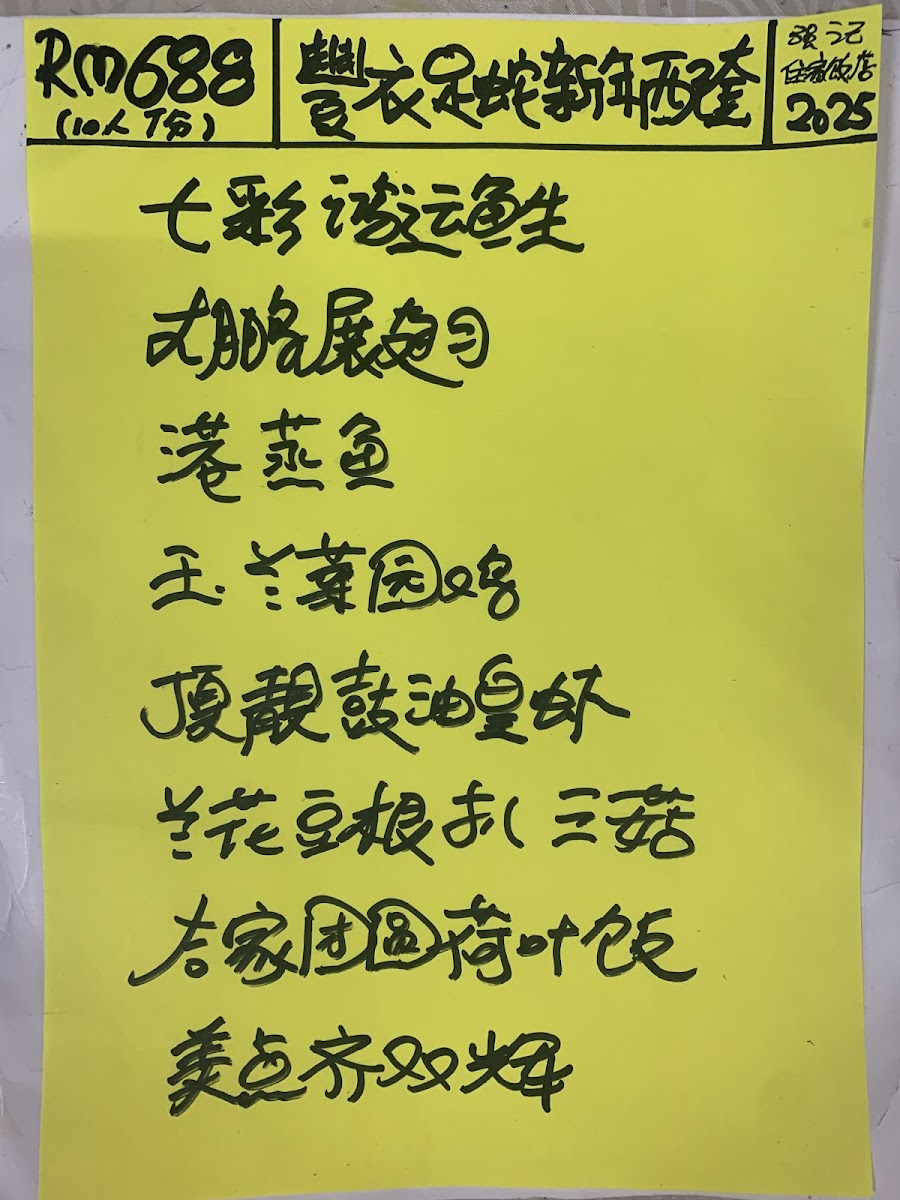 RM688
(10人份)
豐衣足蛇新年西餐
張记
住家饭店
2025
七彩鸿运鱼生
大鹏展翅
港蒸鱼
玉兰菜园鸡
顶靓豉油皇虾
兰花豆根扒三菇
合家团圆荷叶饭
美点齐双辉